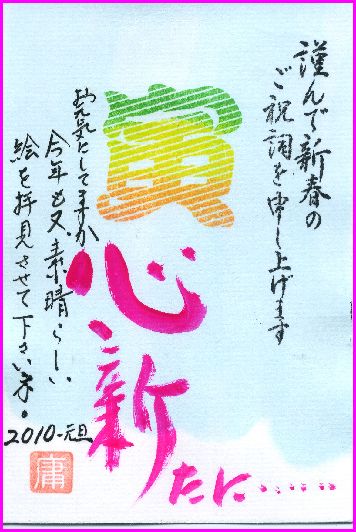 謹んで新春の
ご祝詞を申し上げます
寅
心新
たに……
お元気にしてますか
今年も又、素晴らしい
絵を拝見させて下さいネ。
2010-元旦
庸